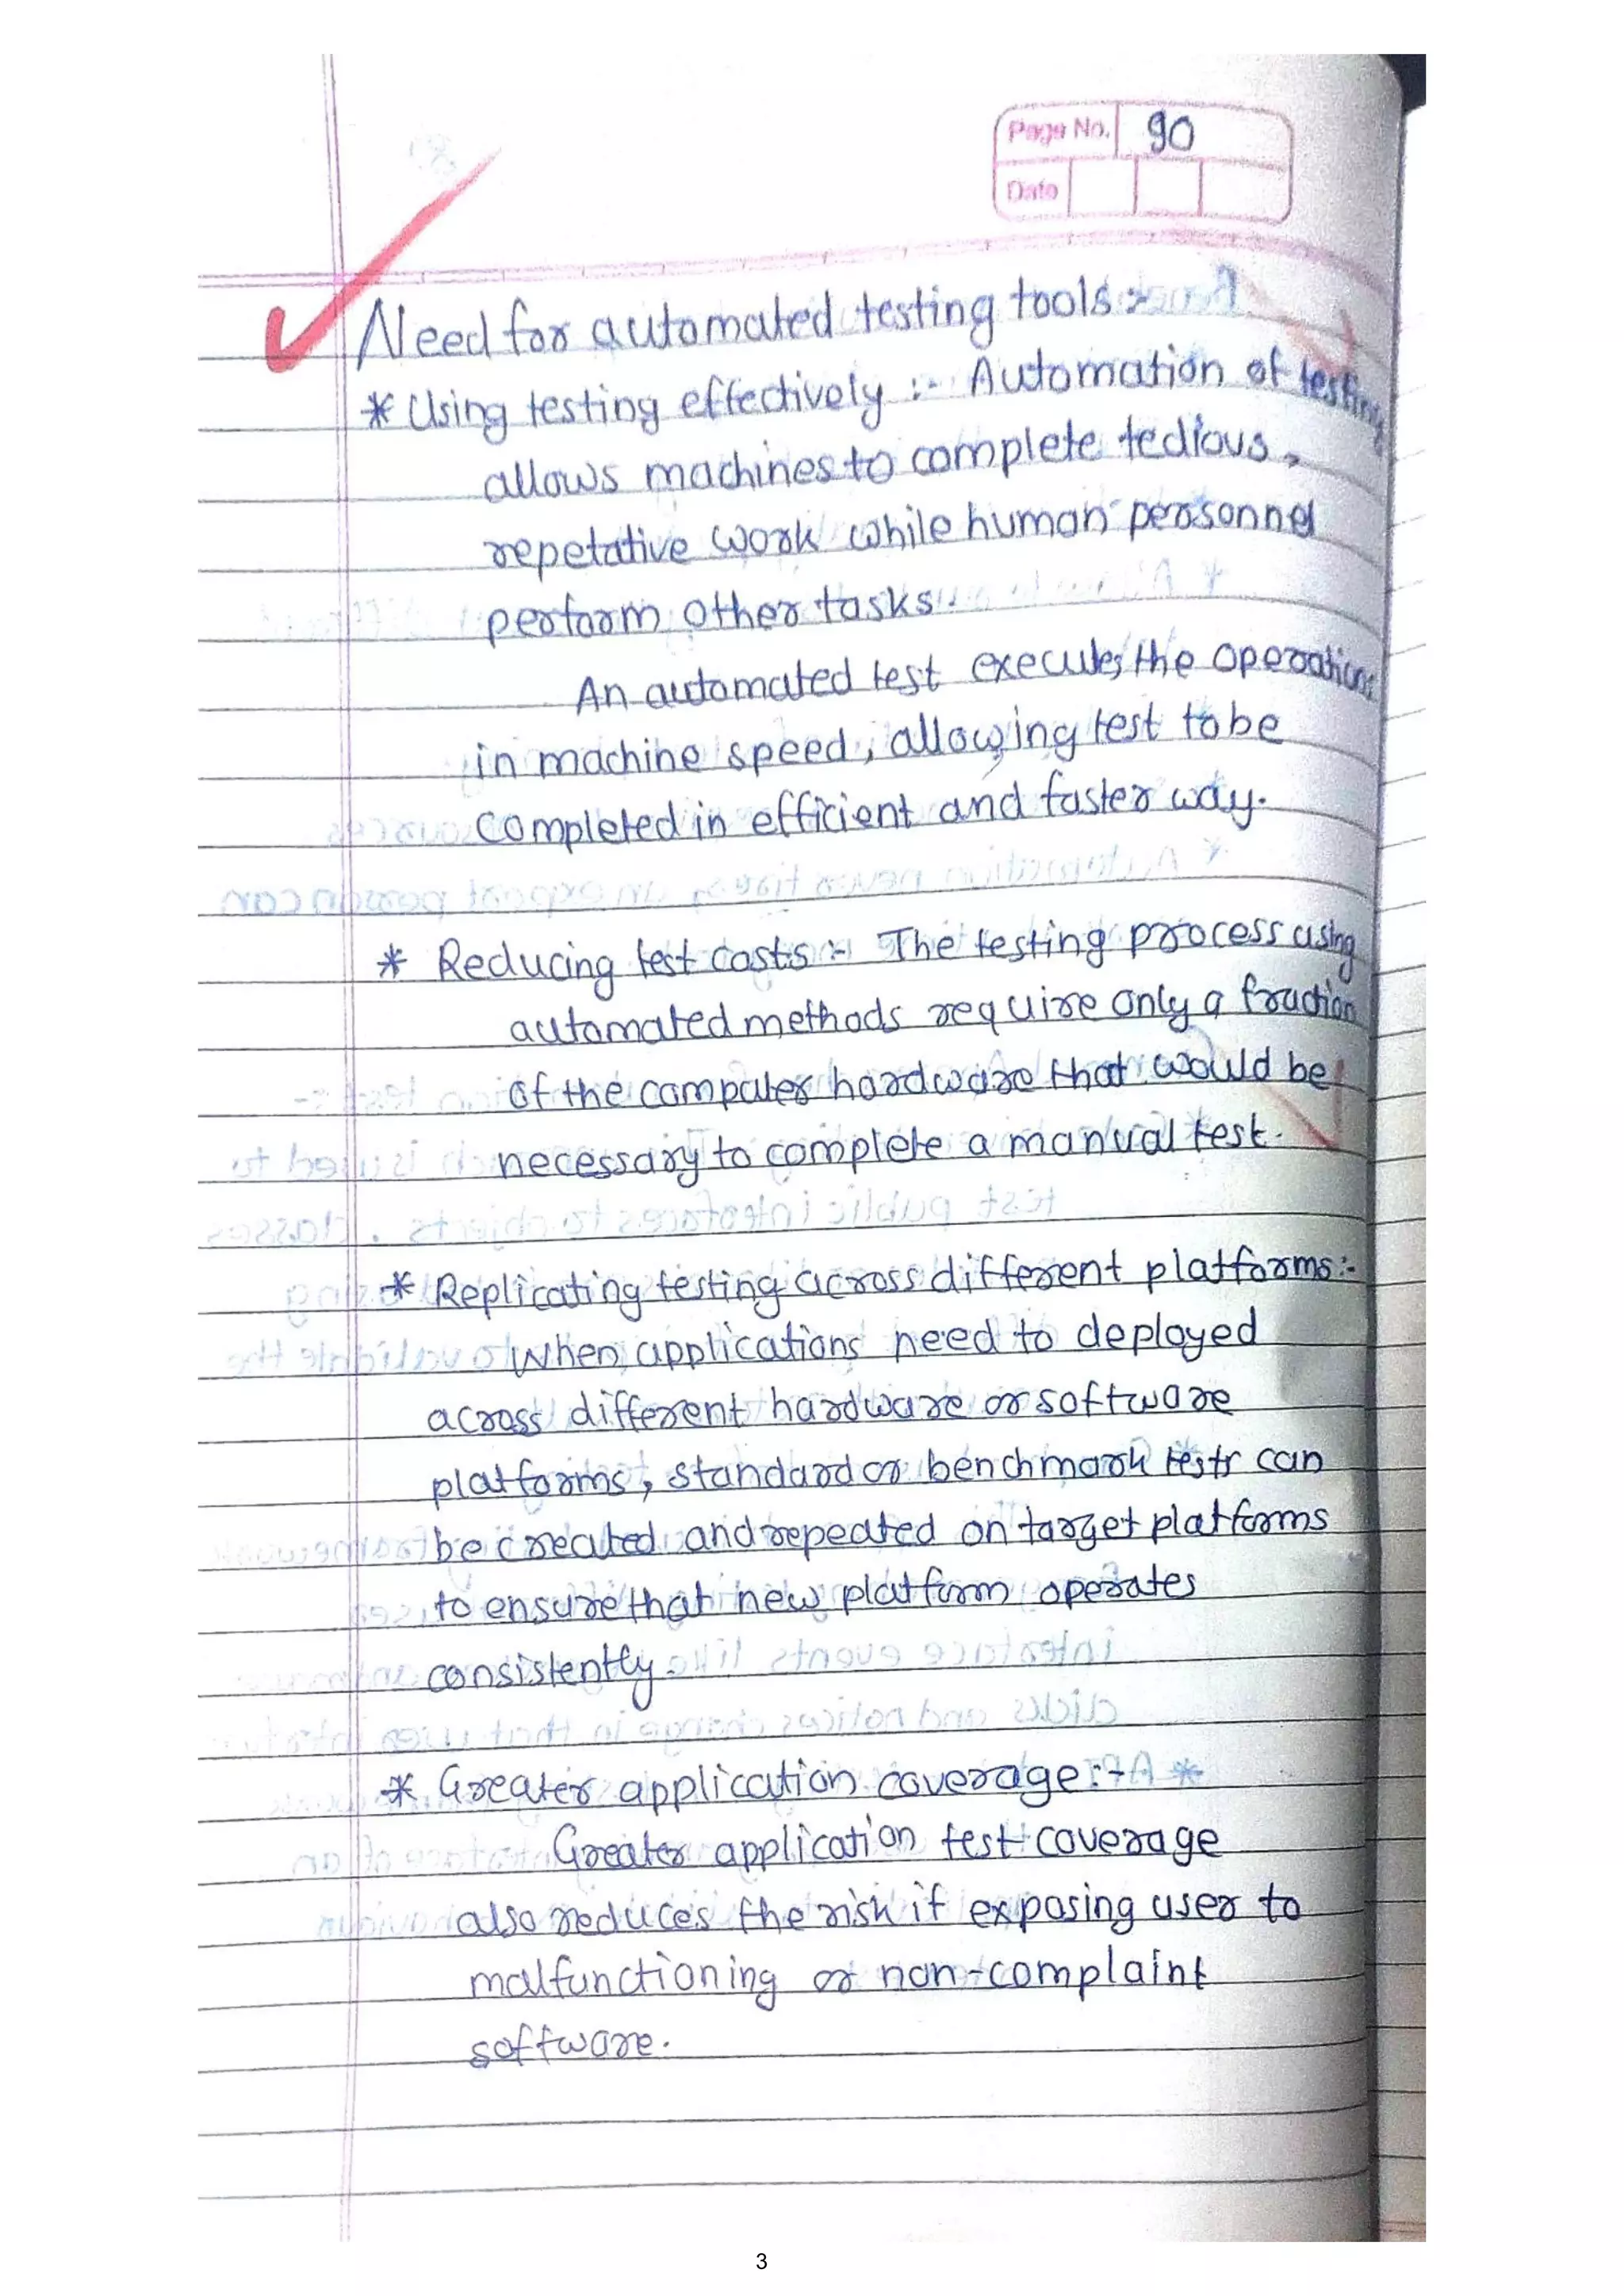 Page No. 90
Date
Need for automated testing tools :-
* Using testing effectively :- Automation of testing
allows machines to complete tedious,
repetative work while human personnel
perform other tasks.
An automated test executes the operations
in machine speed, allowing test to be
completed in efficient and faster way.
* Reducing test costs :- The testing process using
automated methods require only a fraction
of the computer hardware that would be
necessary to complete a manual test.
* Replicating testing across different platforms:-
When applications need to deployed
across different hardware or software
platforms, standard or benchmark tests can
be created and repeated on target platforms
to ensure that new platform operates
consistently.
* Greater application coverage:-
Greater application test coverage
also reduces the risk if exposing user to
malfunctioning or non-complaint
software.
3